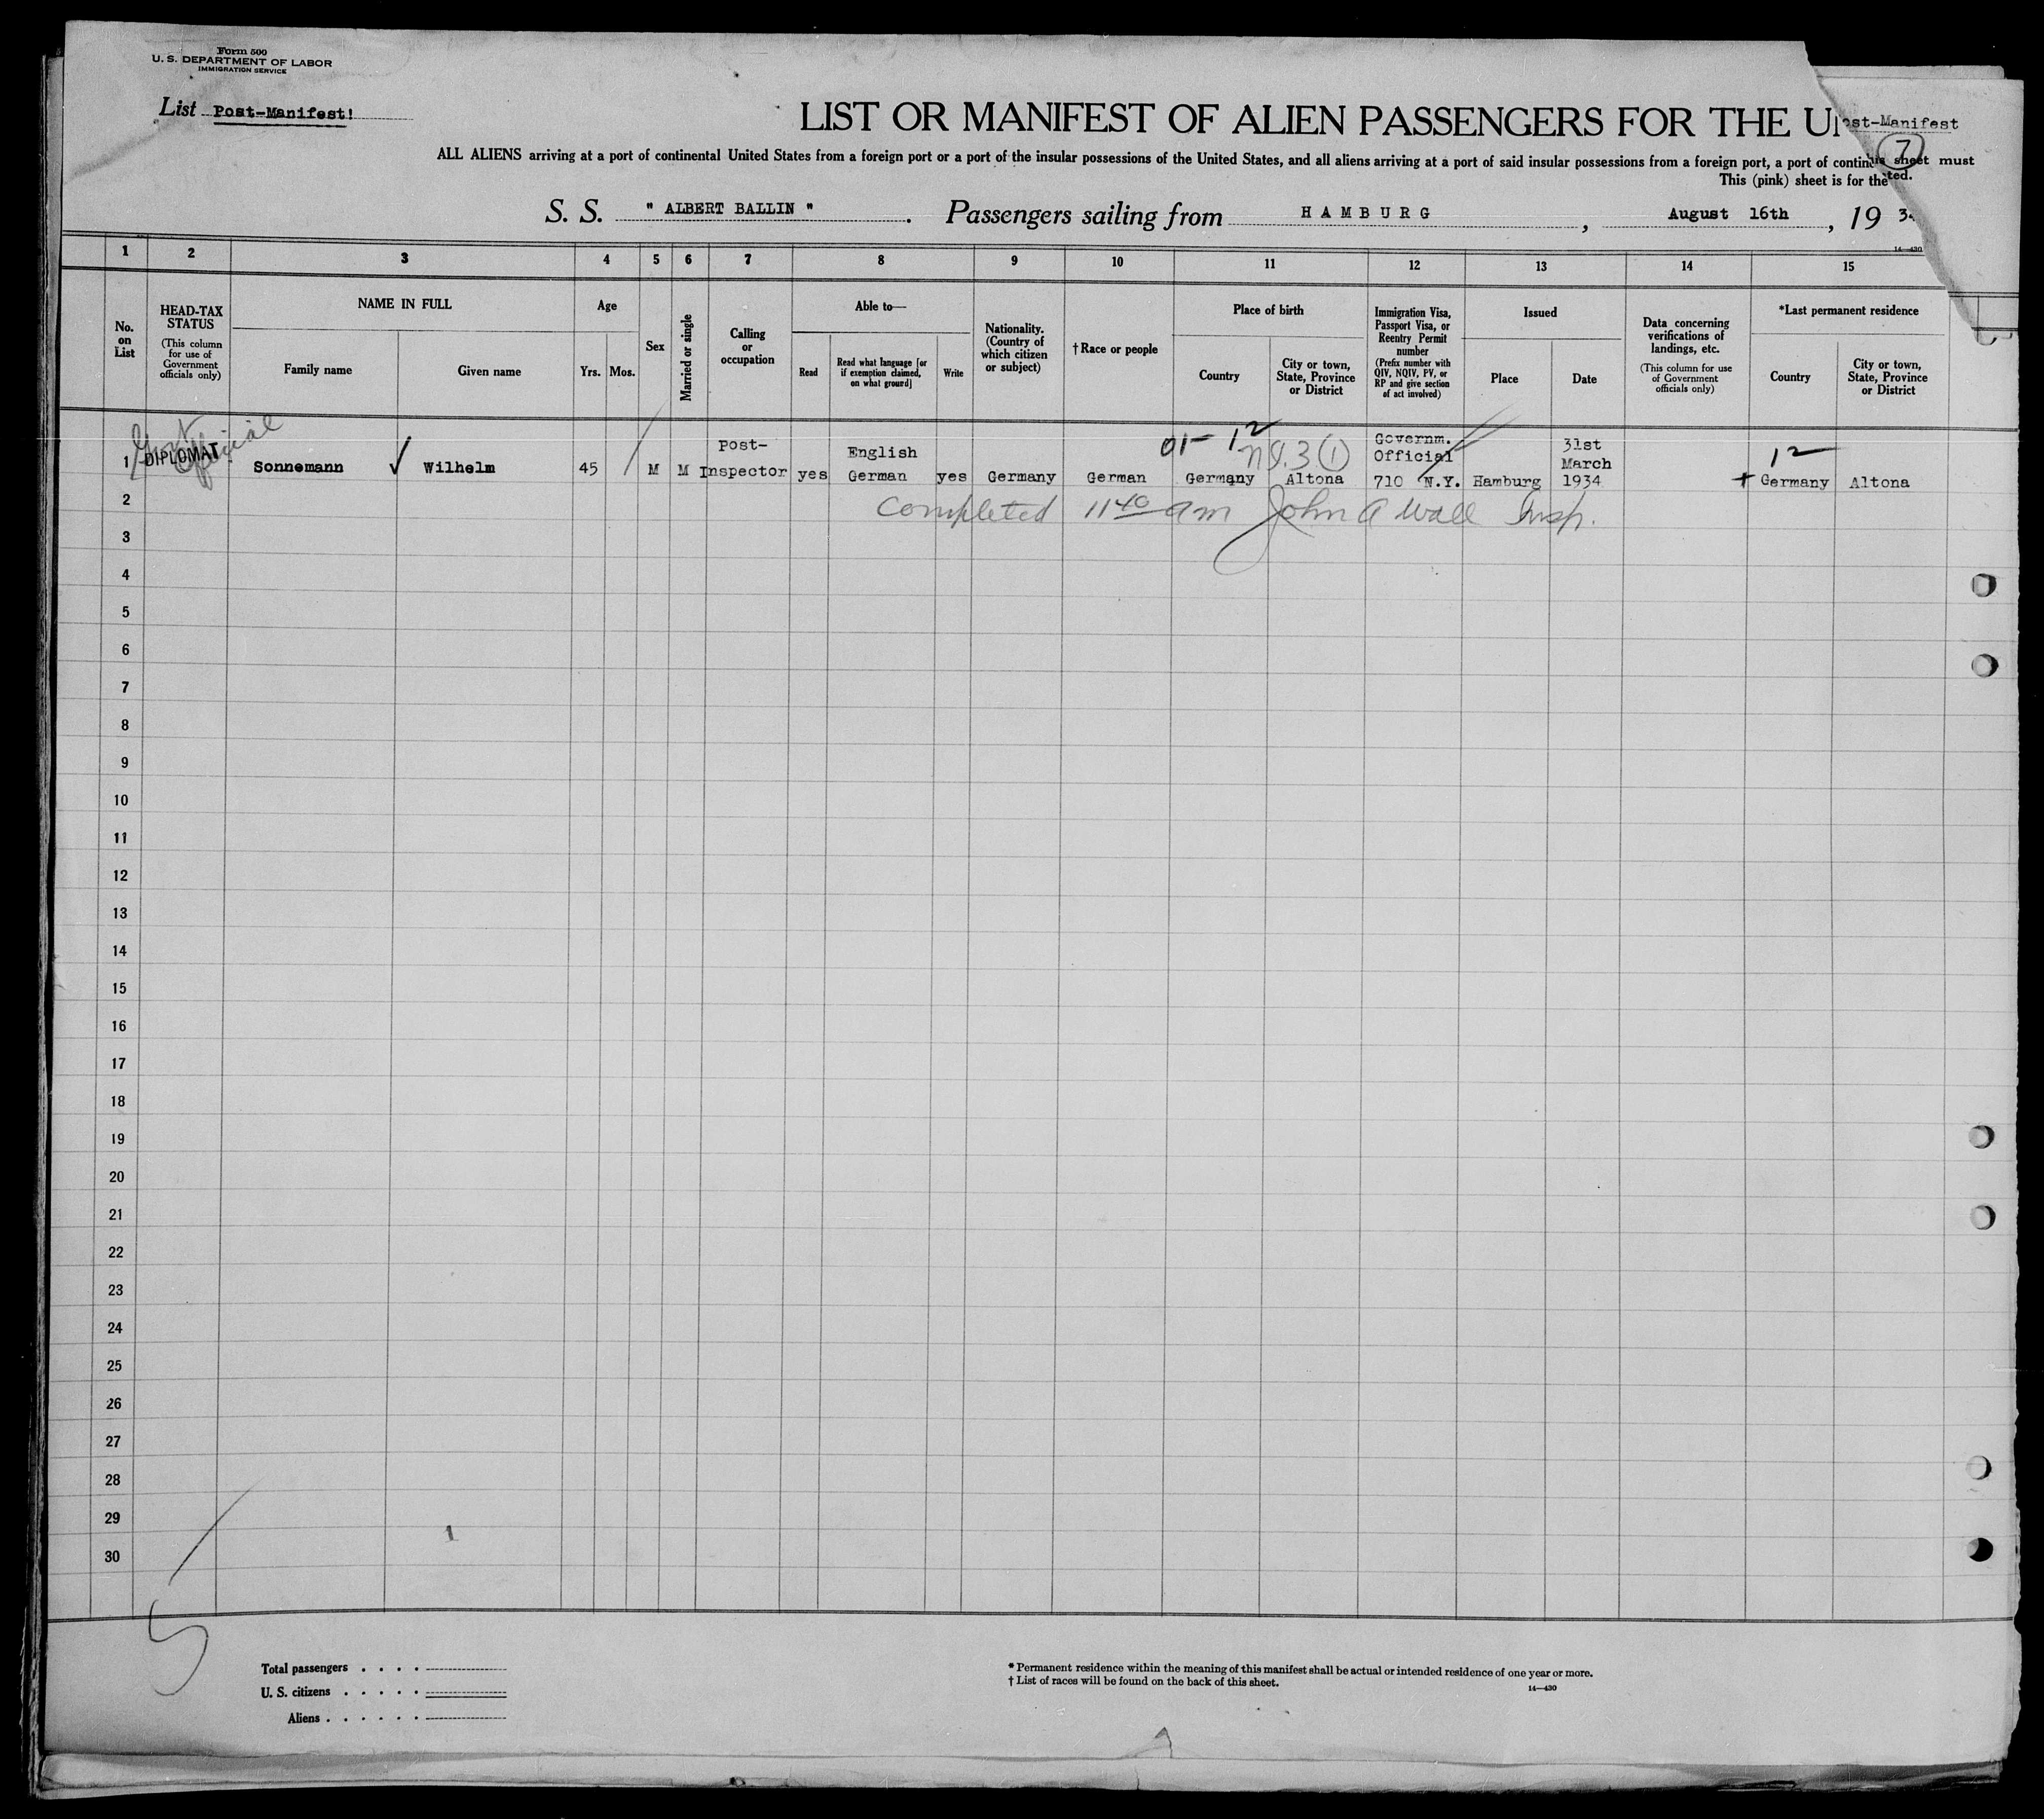 Form 500
U. S. DEPARTMENT OF LABOR
IMMIGRATION SERVICE
List Post-Manifest!
LIST OR MANIFEST OF ALIEN PASSENGERS FOR THE U
ost-Manifest
7
ALL ALIENS arriving at a port of continental United States from a foreign port or a port of the insular possessions of the United States, and all aliens arriving at a port of said insular possessions from a foreign port, a port of contin sheet must
This (pink) sheet is for the ted.
S. S. " ALBERT BALLIN " . Passengers sailing from HAMBURG , August 16th , 19 3
14—430
1 2 3 4 5 6 7 8 9 10 11 12 13 14 15
No. on List
HEAD-TAX STATUS
(This column for use of Government officials only)
NAME IN FULL
Family name
Given name
Age
Yrs. Mos.
Sex
Married or single
Calling or occupation
Able to—
Read
Read what language [or if exemption claimed, on what ground]
Write
Nationality. (Country of which citizen or subject)
† Race or people
Place of birth
Country
City or town, State, Province or District
Immigration Visa, Passport Visa, or Reentry Permit number
(Prefix number with QIV, NQIV, PV, or RP and give section of act involved)
Issued
Place
Date
Data concerning verifications of landings, etc.
(This column for use of Government officials only)
*Last permanent residence
Country
City or town, State, Province or District
Govt Official
01- 12
3 (1)
12
1 DIPLOMAT Sonnemann ✓ Wilhelm 45 M M Post-Inspector yes English German yes Germany German Germany Altona Governm. Official 710 N.Y. Hamburg 31st March 1934 + Germany Altona
2
Completed 11 40 am John A Wall Insp.
3
4
5
6
7
8
9
10
11
12
13
14
15
16
17
18
19
20
21
22
23
24
25
26
27
28
29
1
30
Total passengers
U. S. citizens
Aliens
* Permanent residence within the meaning of this manifest shall be actual or intended residence of one year or more.
† List of races will be found on the back of this sheet.
14—430